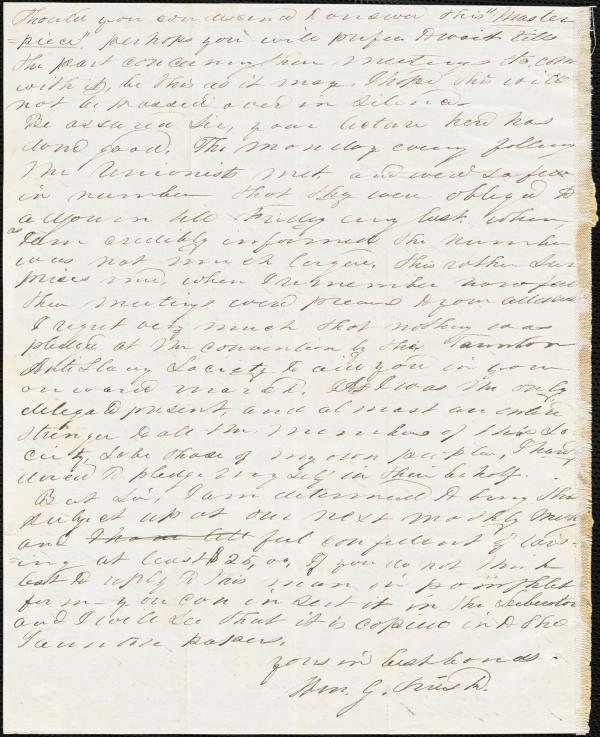 Should you condescend to answer this "Master
=piece" perhaps you will prefer to wait till
the part concerning their meetings to come
with it, be this as it may, I hope this will
not be passed over in silence.
Be assured Sir, your lecture here has
done good. The monday eveng follong
the Unionists met, and were so few
in number that they were obliged to
adjourn till Friday eveng last. when
as I am credibly informed the number
was not much larger. this rather sur
prises me, when I remember how full
their meetings were previous to your
I regret very much that nothing was
pledged at the convention by the Taunton
AntiSlavery Society to aid you in your
onward march. As I was the only
delegate present, and almost an entire
stranger to all the members of this So
ciety, save those of my own people, I hardly
dared to pledge myself in their behalf.
But Sir, I am determined to bring this
subject up at our next monthly
and feel confident of rais
=ing at least $25,00, If you do not think
best to reply to this man in pamphlet
form - you can insert it in the Liberator
and I will see that it is copied into the
Taunton papers.
yours in best bonds.
Wm. G.